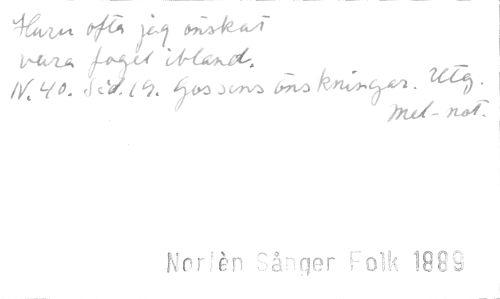 Huru ofta jag önskat
vara fogel ibland.
N. 40. Sid. 19. Gossens önskningar. Utg.
Mel-not.
Norlèn Sånger Folk 1889